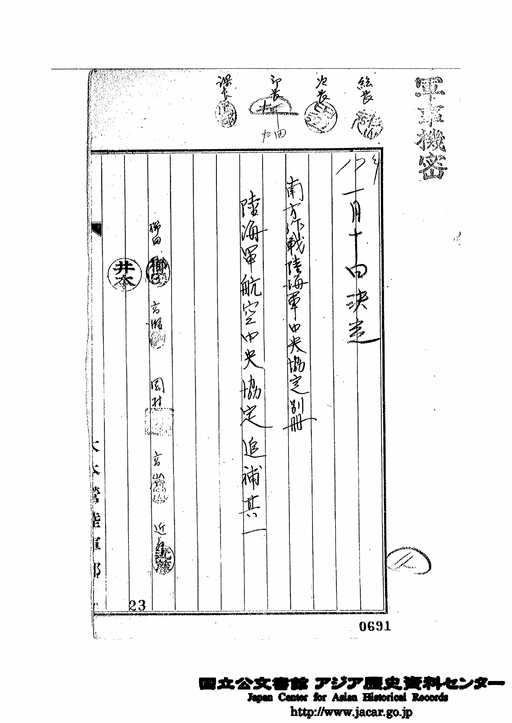 軍事機密
総長
次長
部長
田中
課長
一月十日決定
南方作戦陸海軍中央協定別冊
陸海軍航空中央協定追補其一
櫛田
高瀬
岡村
高山
近藤
井本
大本営陸軍部
23
0691
国立公文書館 アジア歴史資料センター
Japan Center for Asian Historical Records
http://www.jacar.go.jp